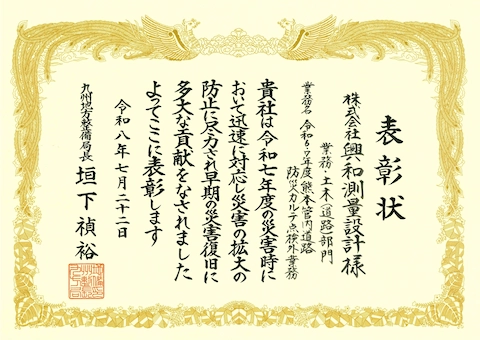 表彰状
株式会社興和測量設計様
業務・土木(道路)部門
業務名 令和6・7年度熊本管内道路
防災カルテ点検外業務
貴社は令和七年度の災害時に
おいて迅速に対応し災害の拡大の
防止に尽力され早期の災害復旧に
多大な貢献をなされました
よってここに表彰します
令和八年七月二十二日
九州地方整備局長 垣下禎裕